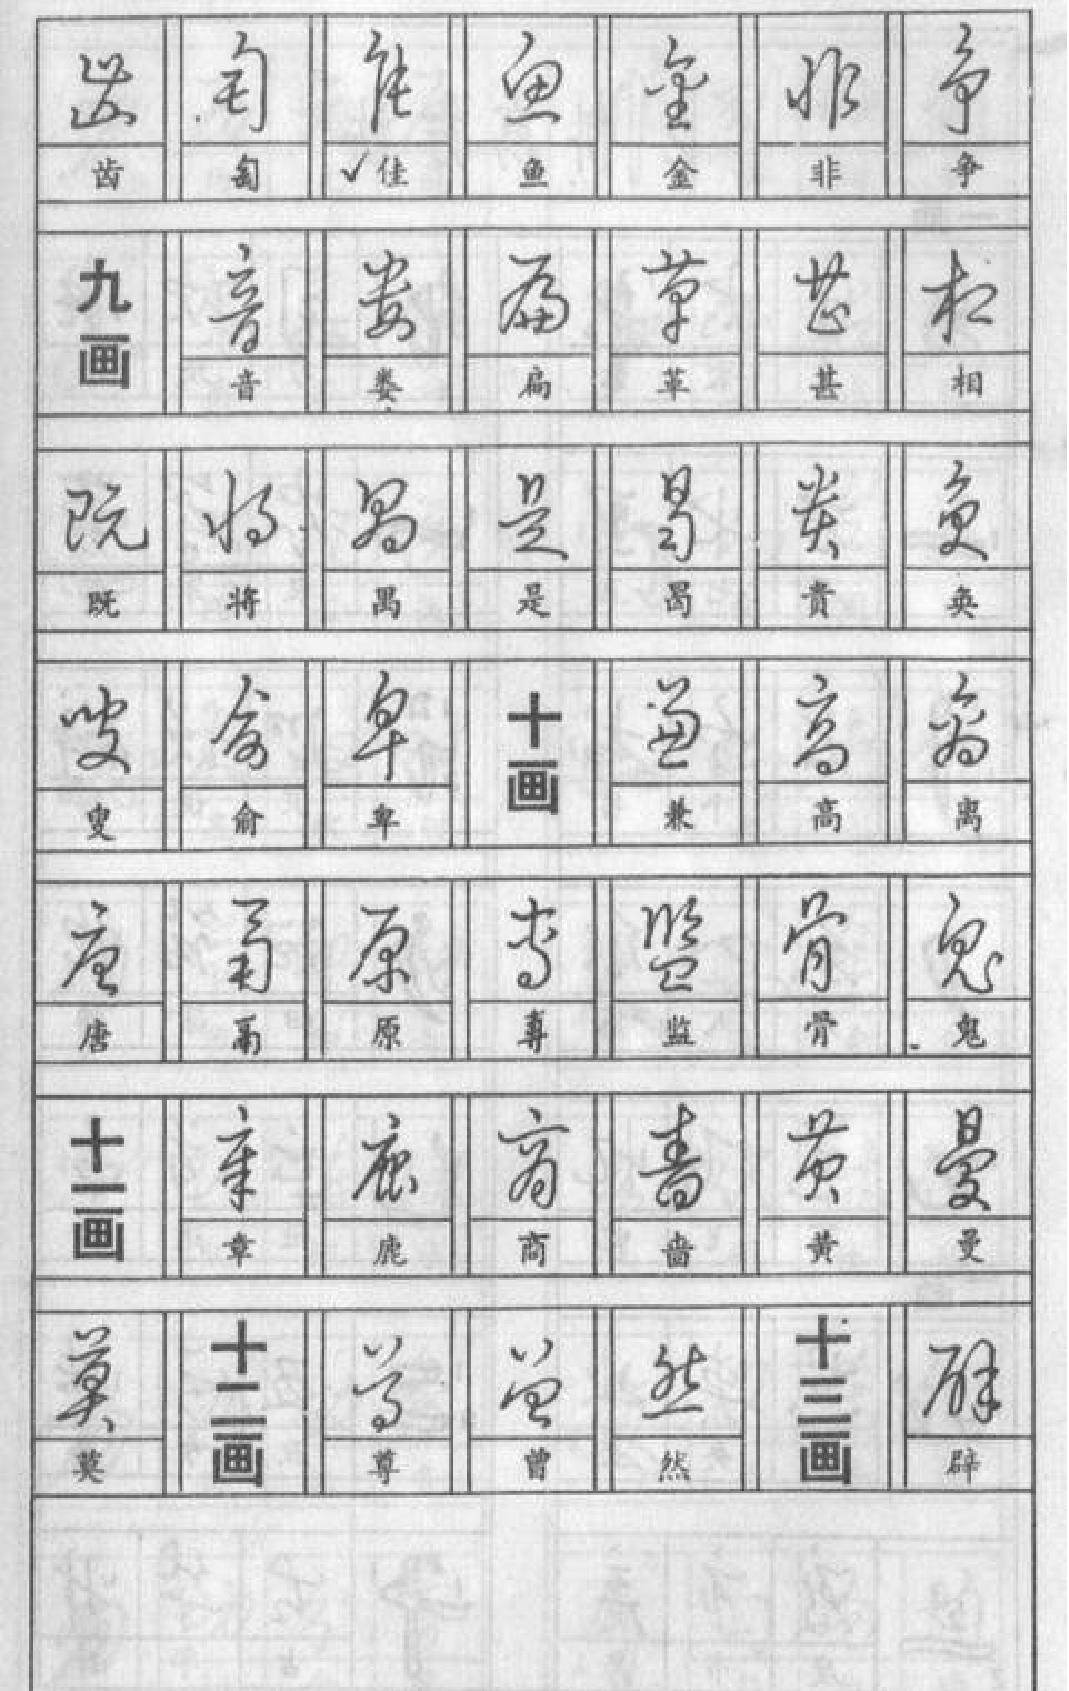 齿 匋 佳 鱼 金 非 争
九画 音 娄 扁 革 甚 相
既 将 禺 是 曷 贵 奂
叟 俞 卑 十画 兼 高 离
唐 鬲 原 尃 监 骨 鬼
十一画 章 鹿 商 啬 黄 曼
莫 十二画 尊 曾 然 十三画 辟